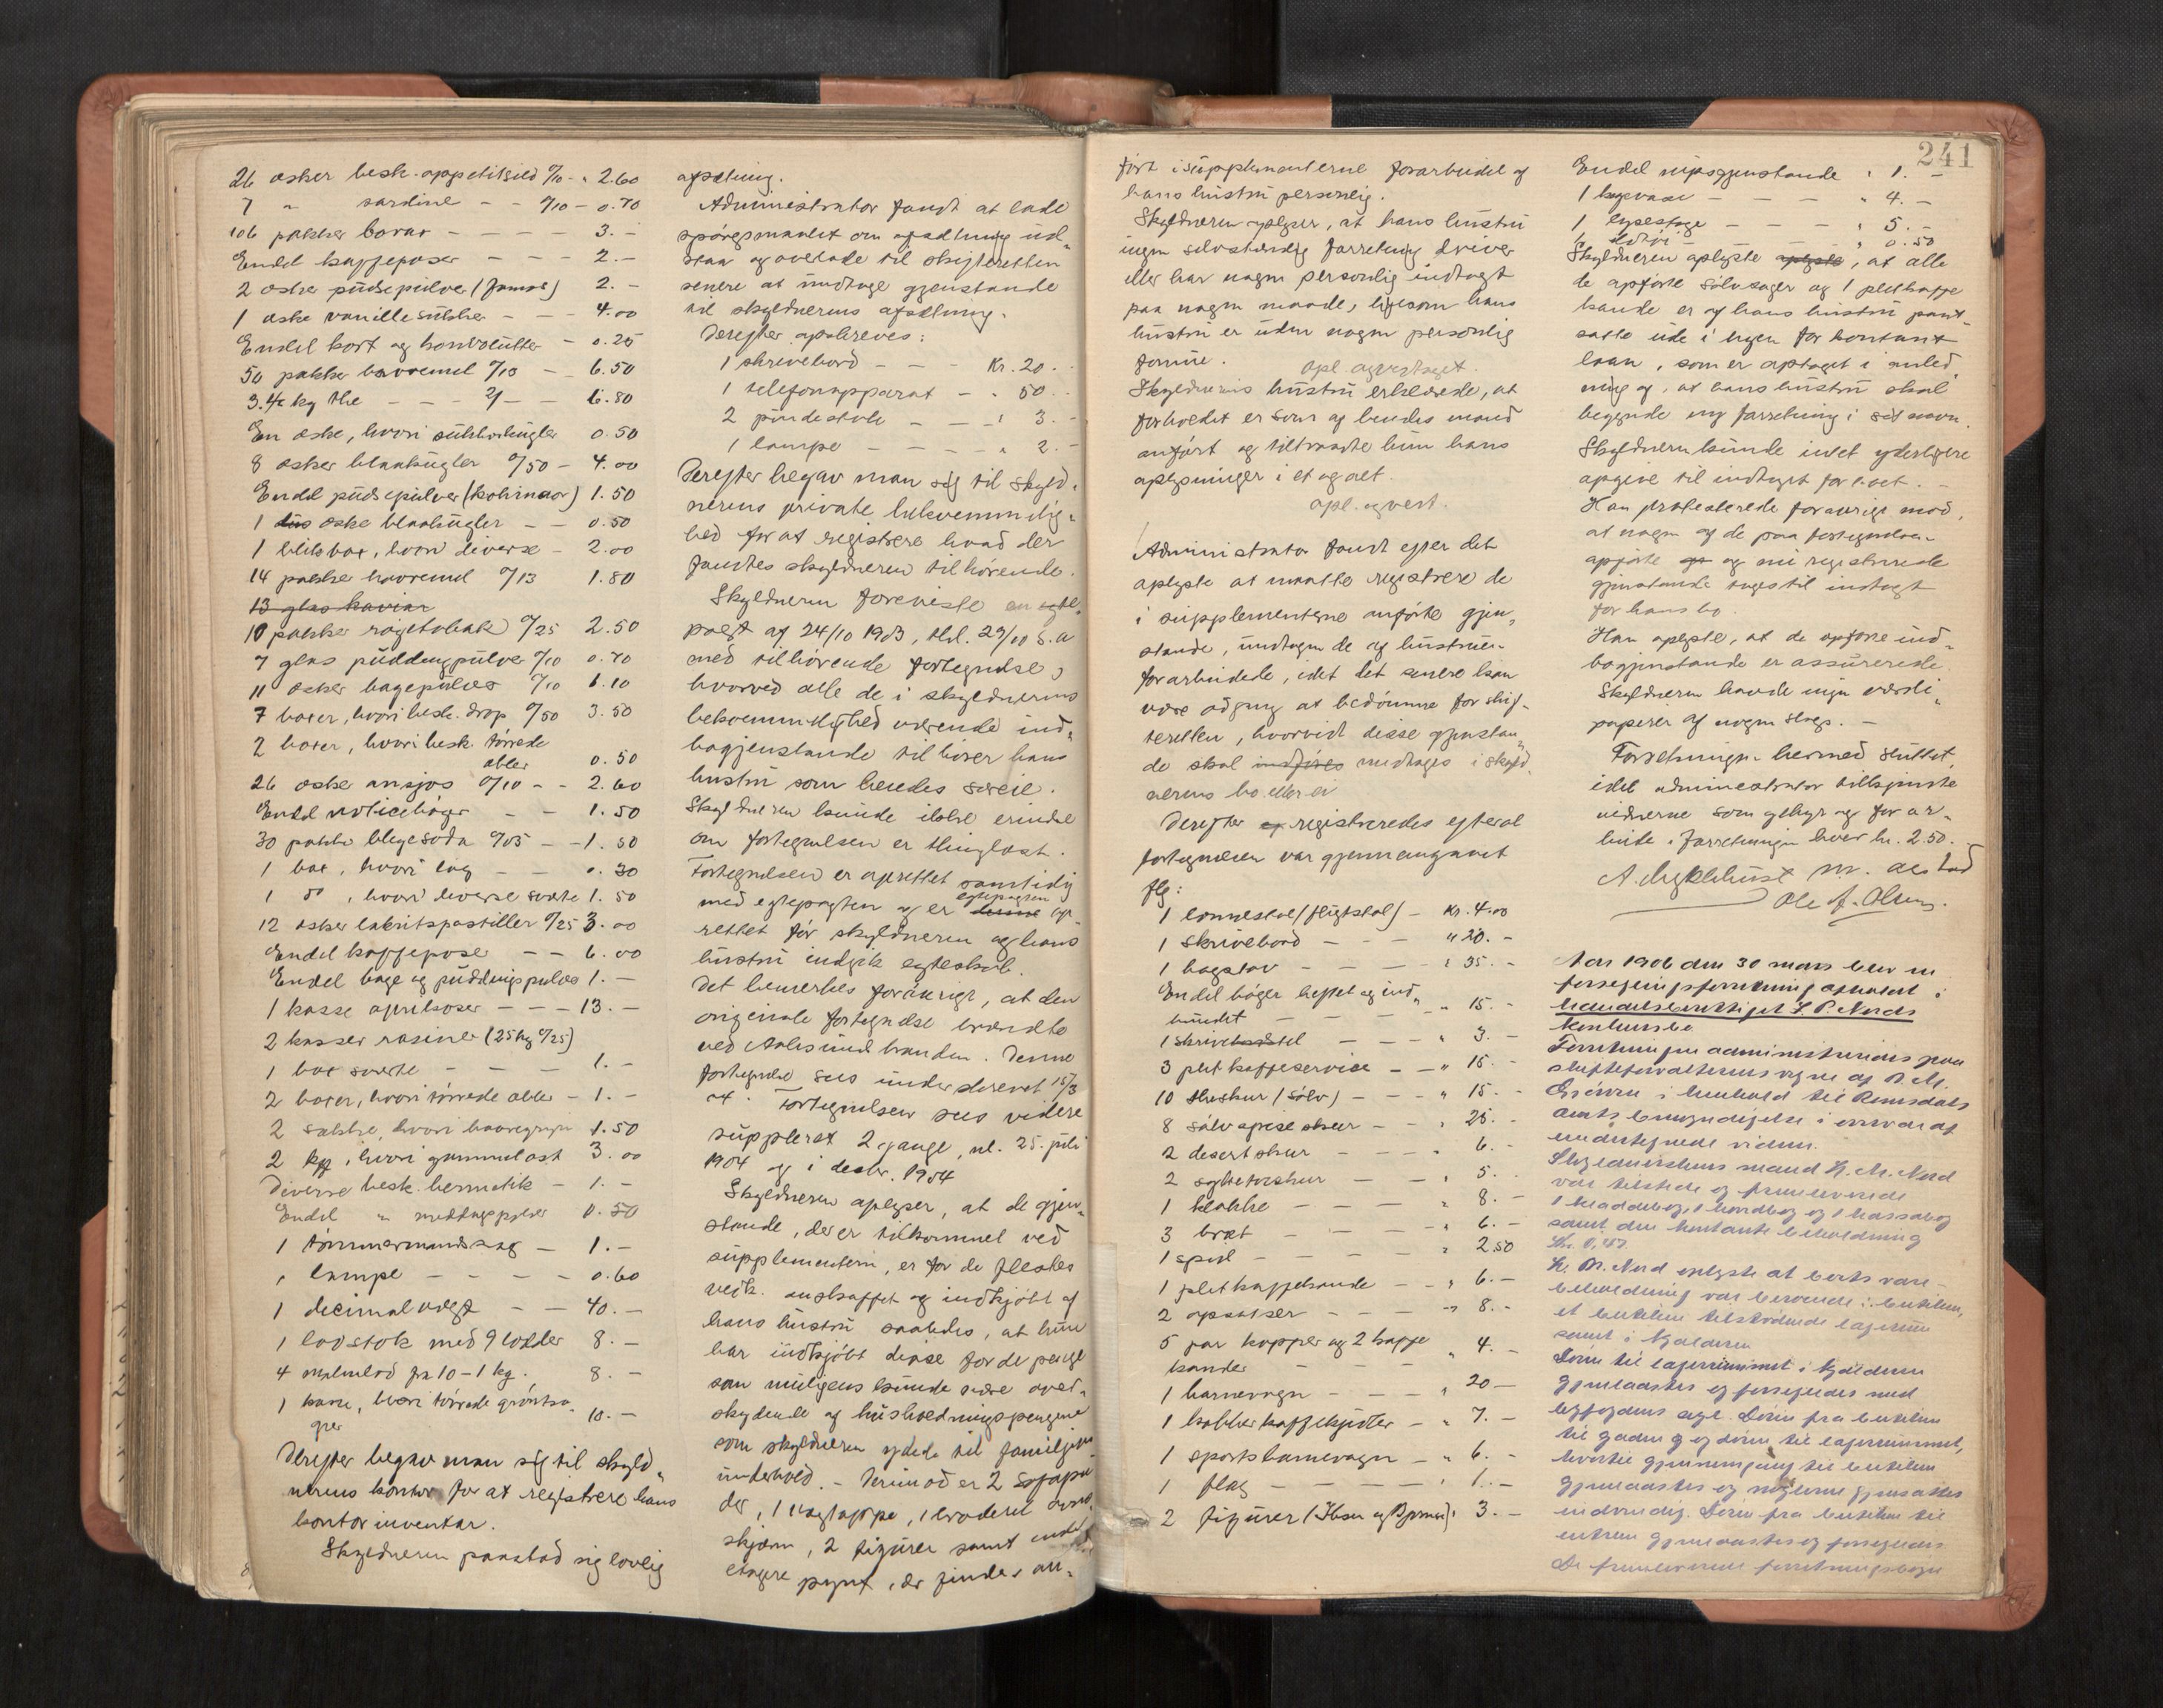 26 æsker besk. appetitsild º/10 - " 2.60
7 " sardine - - º/10 - 0.70
106 pakker borax - - - - 3.-
Endel kaffeposer - - - 2.-
2 æsker pudsepulver (Jamos) 2.-
1 æske vanillesukker - - - 4.00
Endel kort og konvolutter - 0.25
50 pakker havremel º/13 - - 6.50
3.4/2 kg the - - - 2/- - 6.80
En æske, hvori sukkerkugler 0.50
8 æsker blaakugler º/50 - 4.00
Endel pudsepulver (kohinoor) 1.50
1 æske blaakugler - - 0.50
1 blikbox, hvori diverse - 2.00
14 pakker havremel º/13 1.80
13 glas kaviar
10 pakker røgetobak º/25 2.50
7 glas puddingpulver º/10 0.70
11 æsker bagepulver º/10 1.10
7 boxer, hvori besk. drop º/50 3.50
2 boxer, hvori besk. tørrede
æbler 0.50
26 æsker ansjos º/10 - - 2.60
Endel noticebøger - - 1.50
30 pakker blegesoda º/05 - - 1.50
1 box, hvori løg - - 0.30
1 do , hvori diverse sværte 1.50
12 æsker lakritspastiller º/25 3.00
Endel kaffepose - - 6.00
Endel bage og puddingspulver 1.-
1 kasse aprikoser - - - 13.-
2 kasser rosiner (25 kg º/25)
1 box sværte - - - 1.-
2 boxer, hvori tørrede æbler - 1.-
2 sække, hvori havregryn 1.50
2 kgr, hvori gammelost 3.00
Diverse besk. hermetik - 1.-
Endel " 0.50
1 tømmermandssag - 1.-
1 lampe - - - - 0.60
1 decimalvegt - - 40.-
1 lodstok med 9 lodder 8.-
4 malmlod fra 10-1 kg. 8.-
1 kasse, hvori tørrede grøntsa
ger 10.-
Derefter begav man sig til skyld-
nerens kontor for at registrere hans
kontorinventar.
Skyldneren paastod sig lovlig
afsætning.
Administrator fandt at lade
spørgsmaalet om afsætning ud-
staa og overlade til skifteretten
senere at undtage gjenstande
til skyldnerens afsætning.
Derefter opskreves:
1 skrivebord - - - Kr. 20.-
1 telefonapparat - - " 50.-
2 pindestole - - - " 3.-
1 lampe - - - - " 2.-
Derefter begav man sig til skyld-
nerens private bekvemmelig-
hed for at registrere hvad der
fandtes skyldneren tilhørende.
Skyldneren foreviste en egte-
pagt af 24/10 1903, thl. 29/10 s.a.
med tilhørende fortegnelse,
hvorved alle de i skyldnerens
bekvemmelighed værende ind-
bogjenstande tilhører hans
hustru som hendes særeie.
Skyldneren kunde ikke erindre
om fortegnelsen er thinglæst.
Fortegnelsen er oprettet samtidig
med egtepagten og er egtepagten op-
rettet før skyldneren og hans
hustru indgik egteskab.
Det bemerkes forøvrigt, at den
originale fortegnelse brændte
ved Aalesund branden. Denne
fortegnelse sees underskrevet 15/3
04. Fortegnelsen sees videre
suppleret 2 gange, nl. 25. juli
1904 og i decbr. 1904
Skyldneren oplyser, at de gjen-
stande, der er tilkommet ved
supplementerne, er for de flestes
vedk. anskaffet og indkjøbt af
hans hustru saaledes, at hun
har indkjøbt disse for de penge
som muligens kunde være over-
skydende af husholdningspengene
som skyldneren ydede til familjens
underhold. - Derimod er 2 sofapu
der, 1 vægtæppe, 1 broderet ovns-
skjærm, 2 figurer samt endel
etagere pynt, der findes an-
ført i supplementerne forarbeidet af
hans hustru personlig.
Skyldneren oplyser, at hans hustru
ingen selvstændig forretning driver
eller har nogen personlig indtægt
paa nogen maade, ligesom hans
hustru er uden nogen personlig
formue.
opl. og vedtaget.
Skyldnerens hustru erklærede, at
forholdet er som af hendes mand
anført og tiltraadte hun hans
oplysninger i et og alt.
opl. og vedt.
Administrator fandt efter det
oplyste at maatte registrere de
i supplementerne anførte gjen-
stande, undtagen de af hustruen
forarbeidede, idet det senere kan
være adgang at bedømme for skif-
teretten, hvorvidt disse gjenstan-
de skal indføres medtages i skyld-
nerens bo eller ei
Derefter registreredes efterat
fortegnelsen var gjennemgaaet
flg:
1 lænestol (fløistol) - Kr. 4.00
1 skrivebord - - - " 20.-
1 bogskav - - - " 35.-
Endel bøger heftet og ind-
bundet - - - - " 15.-
1 - - - " 3.-
3 plet kaffeservice - - " 15.-
10 theskeer (sølv) - - - " 15.-
8 sølv spiseskeer - - " 25.-
2 desertskeer - - - " 6.-
2 syltetøiskeer - - " 5.-
1 klokke - - - " 8.-
3 bræt - - - - " 6.-
1 speil - - - - " 2.50
1 plet kaffekande - - " 6.-
2 opsatser - - - - " 8.-
5 par kopper og 2 kaffe
kander - - - " 4.-
1 barnevogn - - - " 20-
1 kobberkaffekjedler - " 7.-
1 sportsbarnevogn - " 6.-
1 flag - - - - " 1.-
2 figurer (Ibsen og Bjørnson) " 3.-
241
Endel nipsgjenstande " 1.-
1 - - - " 4.-
1 lysestage - - - " 5.-
1 - - " 0.50
Skyldneren oplyste oplyste, at alle
de opførte sølvsager og 1 pletkaffe
kande er af hans hustru pant-
satte ude i byen for kontant
laan, som er optaget i anled-
ning af, at hans hustru skal
begynde ny forretning i sit navn.
Skyldneren kunde intet yderligere
opgive til indtægt for boet. -
Han protesterede forøvrigt mod,
at nogen af de paa fortegnelsen
opførte og nu registrerede
gjenstande toges til indtægt
for hans bo.
Han oplyste, at de opførte ind-
bogjenstande er assurerede.
Skyldneren havde ingen værdi-
papirer af nogen slags. -
Forretningen hermed sluttet,
idet administrator tilkjendte
vidnerne som gebyr og for ar-
beide i forretningen hver kr. 2.50.
Ole A. Olsen.
Aar 1906 den 30 mars blev en
forseglingsforretning afholdt i
handelsberettiget P. Nords
konkursbo
Forretningen administreredes paa
skifteforvalterens vegne af
i henhold til Romsdals
amts bemyndigelse i overvær af
undertegnede vidner.
mand Nord
var tilstede og fremleverede
1 kladdebog, 1 hovedbog og 1 kassabog
samt den kontante beholdning
Nord oplyste at boets vare-
beholdning var beroende i butiken,
et butiken tilstødende lagerrum
samt i kjælderen
Døren til lagerrummet i kjælderen
gjenlaastes og forsegledes med
byfogdens segl. Døren fra butiken
til gaden og døren til lagerrummet,
hvortil gjennemgang til butiken
gjenlaastes og nøglerne
indvendig. Døren fra butiken til
entreen gjenlaastes og forsegledes
De fremleverede forretningsbøger